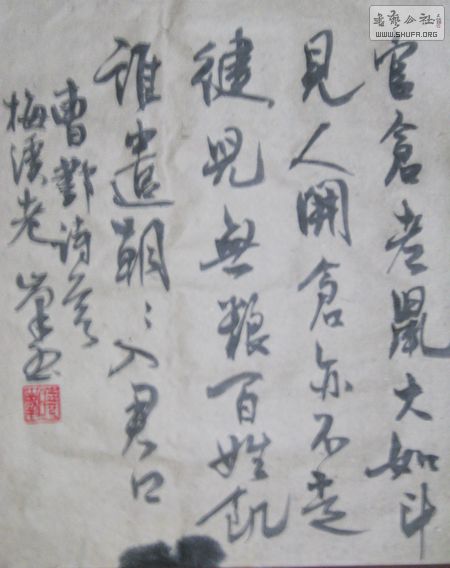 官倉老鼠大如斗
見人開倉亦不走
健兒無粮百姓飢
誰遣朝〻入君口
曹鄴诗
梅溪老
書藝公社
WWW.SHUFA.ORG